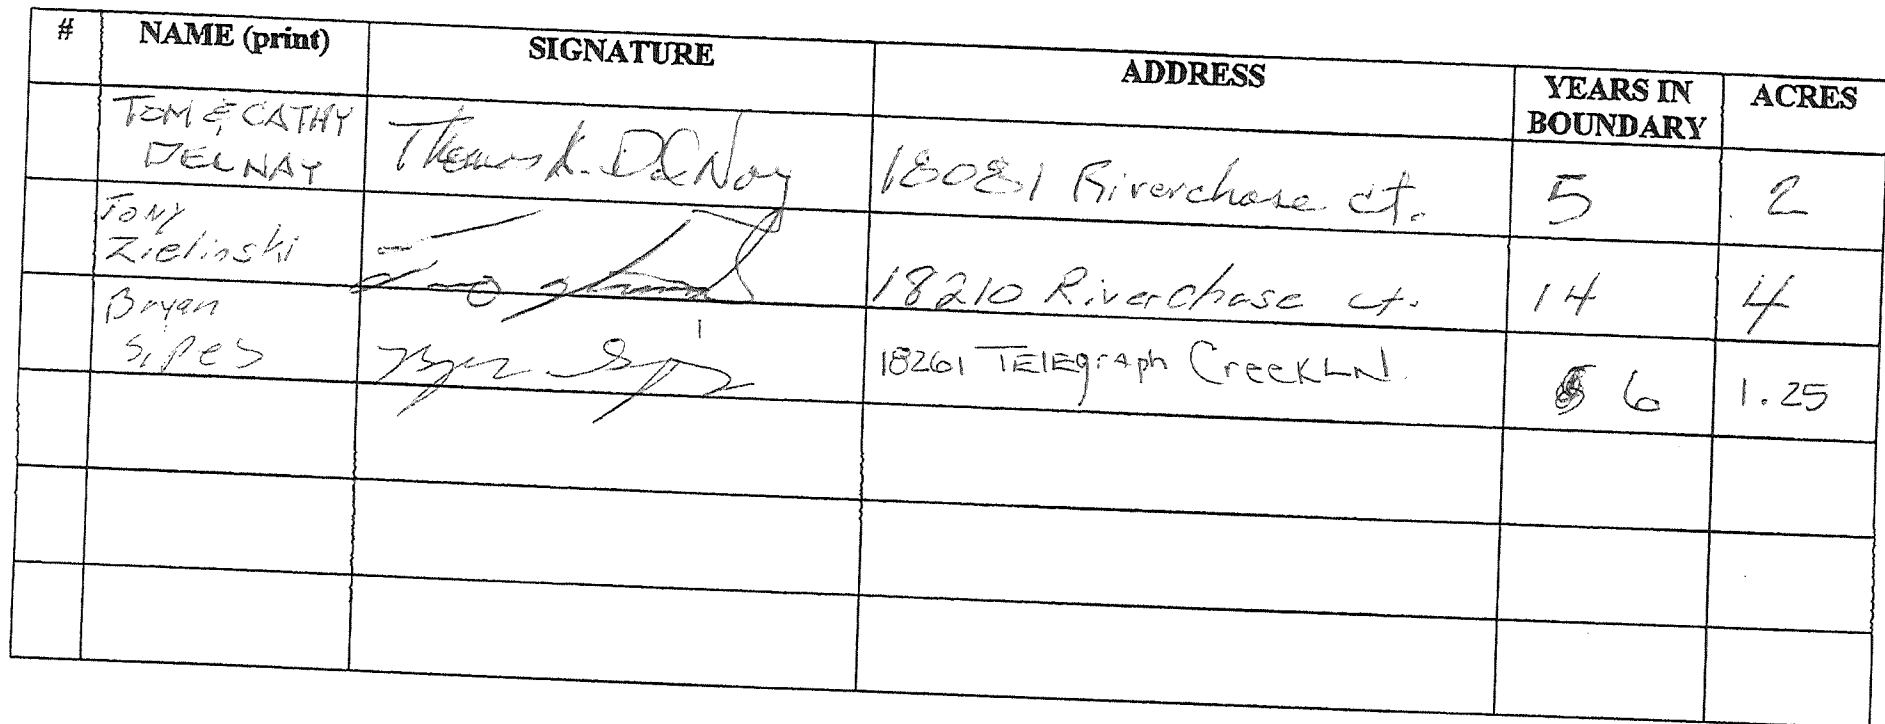 # NAME (print) SIGNATURE ADDRESS YEARS IN BOUNDARY ACRES
TOM & CATHY
DELNAY
Thomas K. DelNay
18081 Riverchase ct.
5
2
Tony
Zielinski
18210 Riverchase ct.
14
4
Bryan
Sipes
18261 TELEgrAph CreekLN.
6
1.25